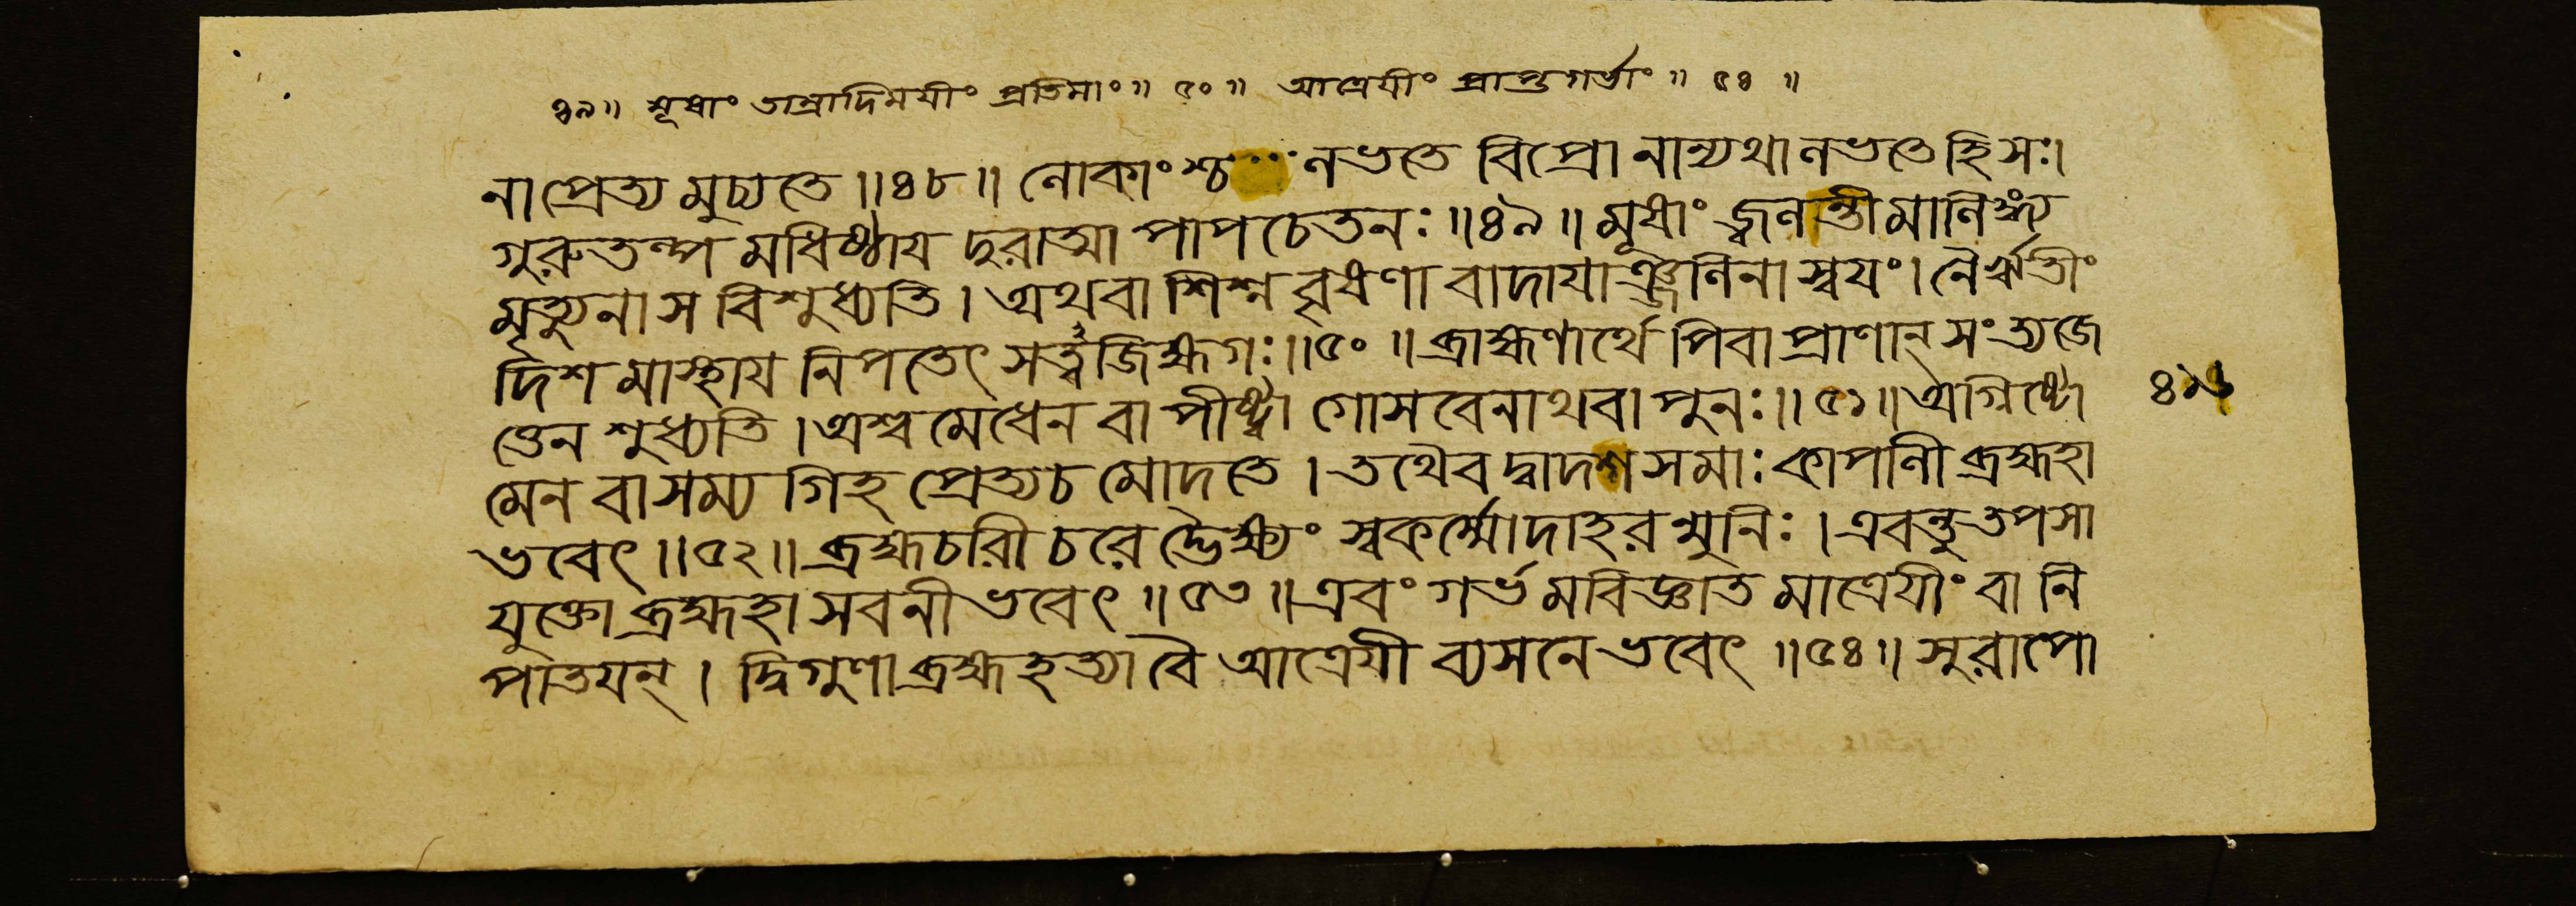 ৪৯॥ মূষাং তাম্রাদিময়ীং প্রতিমাং॥ ৫০॥ আত্রেয়ীং প্রাপ্তগর্ভাং॥ ৫৪॥
না প্রেত্য মুচ্যতে॥৪৮॥ লোকাংশ্চ লভতে বিপ্রো নান্যথা লভতে হি সঃ।
গুরুতল্প মধিষ্ঠায দুরাত্মা পাপ চেতনঃ॥৪৯॥ মূষাং জ্বলন্তীমালিঙ্গ্য
মৃত্যুনা স বিশুধ্যতি। অথবা শিশ্ন বৃষণা বাদাযাঞ্জলিনা স্বযং। নৈর্ঋতীং
দিশ মাস্থায নিপতেৎ সত্বজিহ্মগঃ॥৫০॥ ব্রাহ্মণার্থে পিবা প্রাণান্ সংত্যজে
ত্তেন শুধ্যতি। অশ্ব মেধেন বা পীষ্ট্বা গোসবেনাথবা পুনঃ॥৫১॥ অগ্নিষ্টো
মেন বা সম্য গিহ প্রেত্যচ মোদতে। তথৈব দ্বাদশ সমাঃ কাপালী ব্রহ্মহা
ভবেৎ॥৫২॥ ব্রহ্মচরী চরেদ্ভৈক্ষ্যং স্বকর্ম্মোদাহরন্মুনিঃ। এবন্তু তপসা
যুক্তো ব্রহ্মহা সবনী ভবেৎ॥৫৩॥ এবং গর্ভমবিজ্ঞাত মাত্রেযীং বা নি
পাতযন্। দ্বিগুণা ব্রহ্মহত্যা বৈ আত্রেযী ব্যসনে ভবেৎ॥৫৪॥ সুরাপো